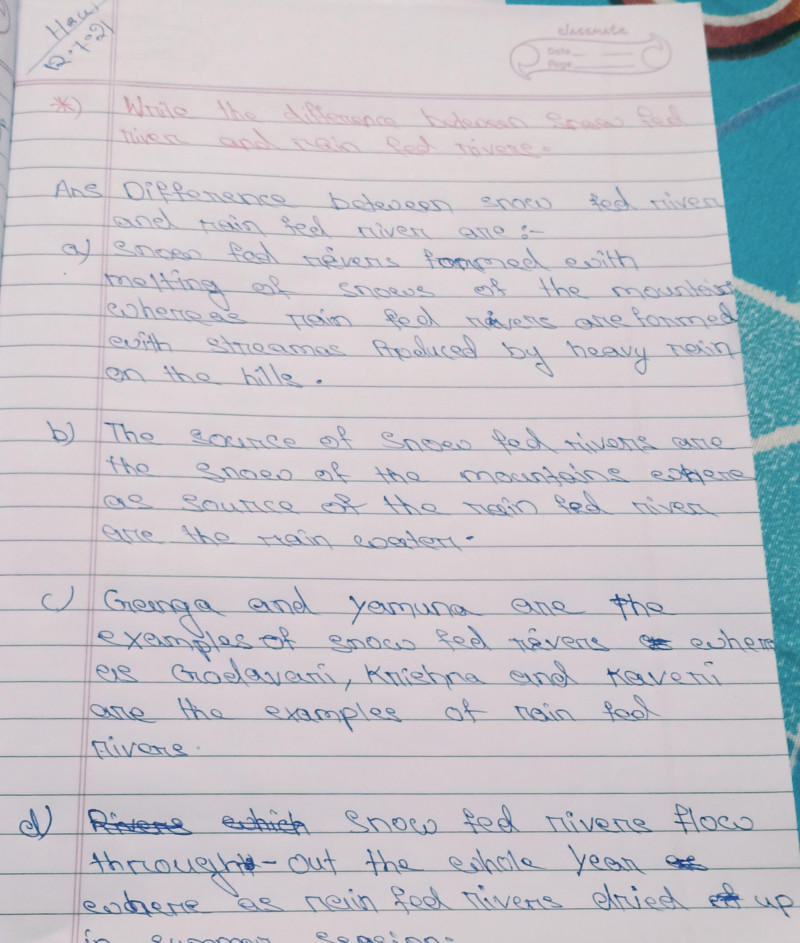 H.W
12.7.21
classmate
Date
Page
*) Write the difference between snow fed
river and rain fed rivers.
Ans Difference between snow fed river
and rain fed river are :-
a) Snow fed rivers formed with
melting of snows of the mountains
whereas rain fed rivers are formed
with streamas Produced by heavy rain
on the hills.
b) The source of snow fed rivers are
the snow of the mountains where
as source of the rain fed river
are the rain water.
c) Ganga and yamuna are the
examples of snow fed rivers where
as Godavari, Krishna and Kaveri
are the examples of rain fed
rivers.
d) Rivers which Snow fed rivers flow
through-out the whole year
where as rain fed rivers dried up
in summer season.